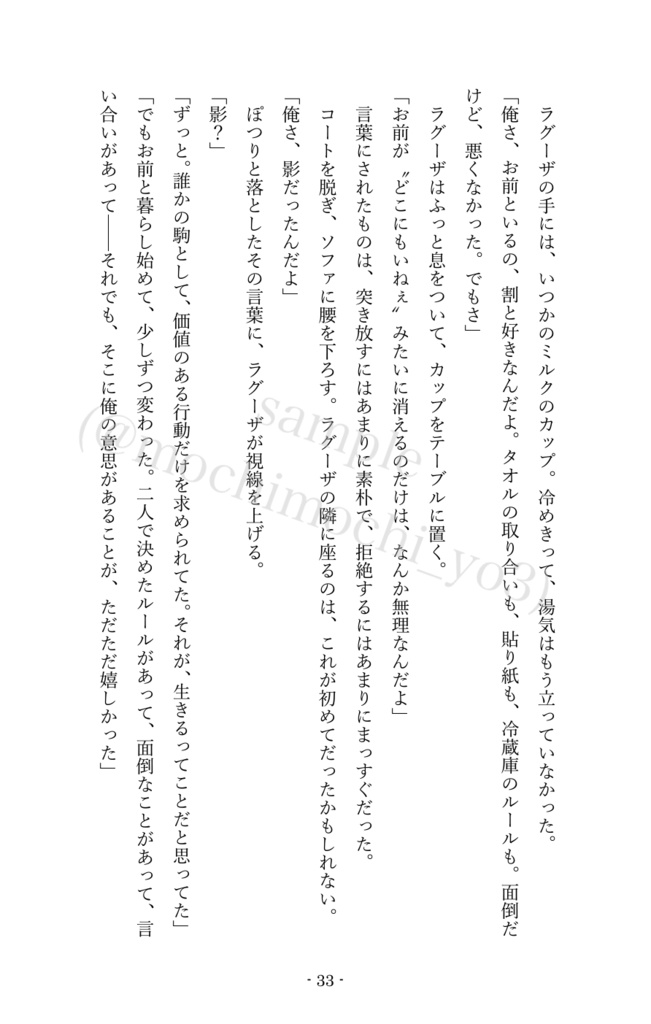 ラグーザの手には、いつかのミルクのカップ。冷めきって、湯気はもう立っていなかった。
「俺さ、お前といるの、割と好きなんだよ。タオルの取り合いも、貼り紙も、冷蔵庫のルールも。面倒だ
けど、悪くなかった。でもさ」
ラグーザはふっと息をついて、カップをテーブルに置く。
「お前が〝どこにもいねぇ〟みたいに消えるのだけは、なんか無理なんだよ」
言葉にされたものは、突き放すにはあまりに素朴で、拒絶するにはあまりにまっすぐだった。
コートを脱ぎ、ソファに腰を下ろす。ラグーザの隣に座るのは、これが初めてだったかもしれない。
「俺さ、影だったんだよ」
ぽつりと落としたその言葉に、ラグーザが視線を上げる。
「影？」
「ずっと。誰かの駒として、価値のある行動だけを求められてた。それが、生きるってことだと思ってた」
「でもお前と暮らし始めて、少しずつ変わった。二人で決めたルールがあって、面倒なことがあって、言
い合いがあって――それでも、そこに俺の意思があることが、ただただ嬉しかった」
sample
(@mochimochi_yo3)
- 33 -